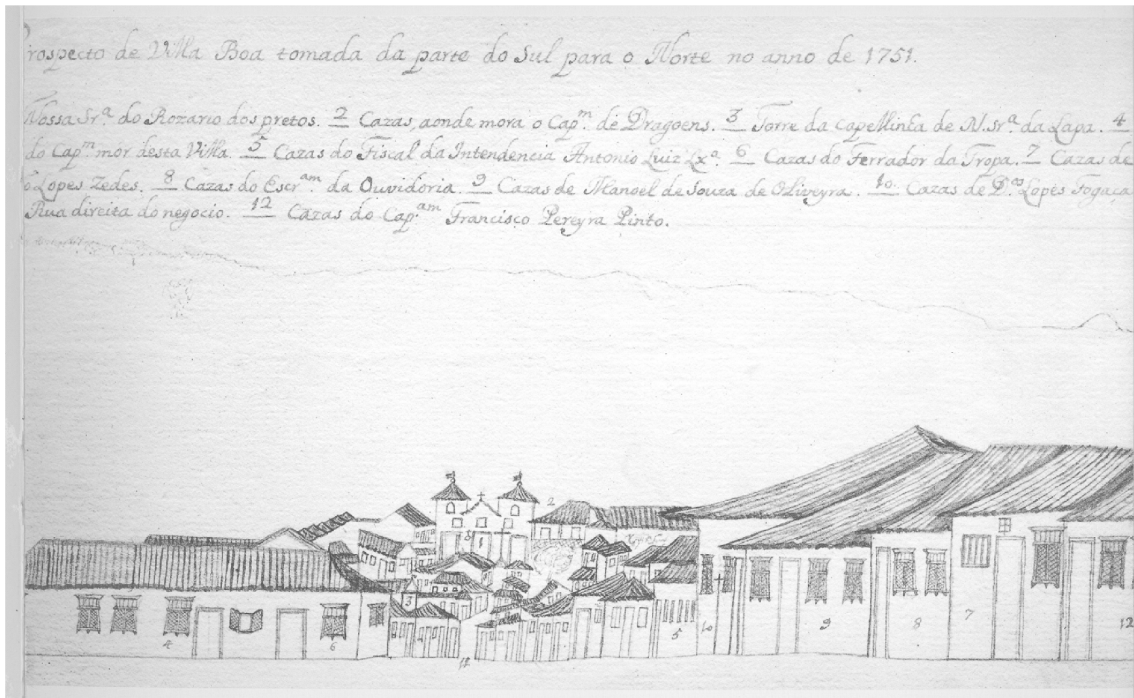 rospecto de Villa Boa tomada da parte do Sul para o Norte no anno de 1751.
Nossa Sr.ª do Rozario dos pretos. 2 Cazas, aonde mora o Cap.ᵐ de Dragoens. 3 Torre da Capellinha de N. Sr.ª da Lapa. 4
do Cap.ᵐ mór desta Villa. 5 Cazas do Fiscal da Intendencia Antonio Luiz Lx.ª 6 Cazas do Ferrador da Tropa. 7 Cazas de
o Lopes Zedes. 8 Cazas do Escr.ᵃᵐ da Ouvidoria. 9 Cazas de Manoel de Souza de Oliveyra. 10. Cazas de D.ᵒˢ Lopes Fogaça
Rua direita do negocio. 12 Cazas do Cap.ᵃᵐ Francisco Pereyra Pinto.
2
1
3
4
6
11
5
10
9
8
7
12